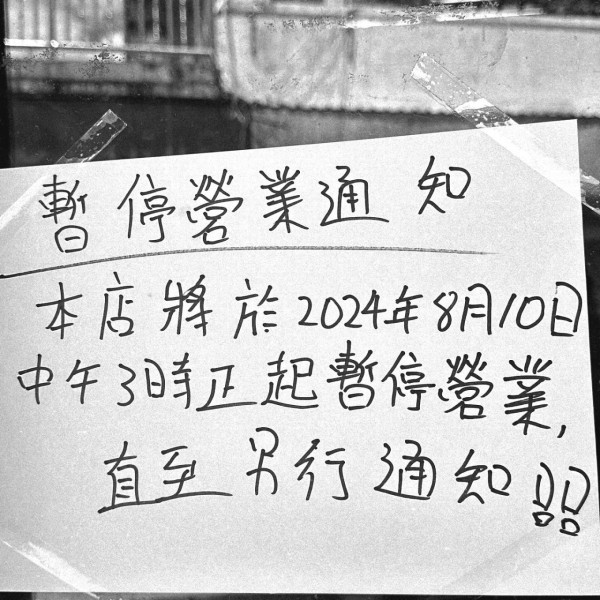 暫停營業通知
本店將於2024年8月10日
中午3時正起暫停營業,
直至另行通知!!